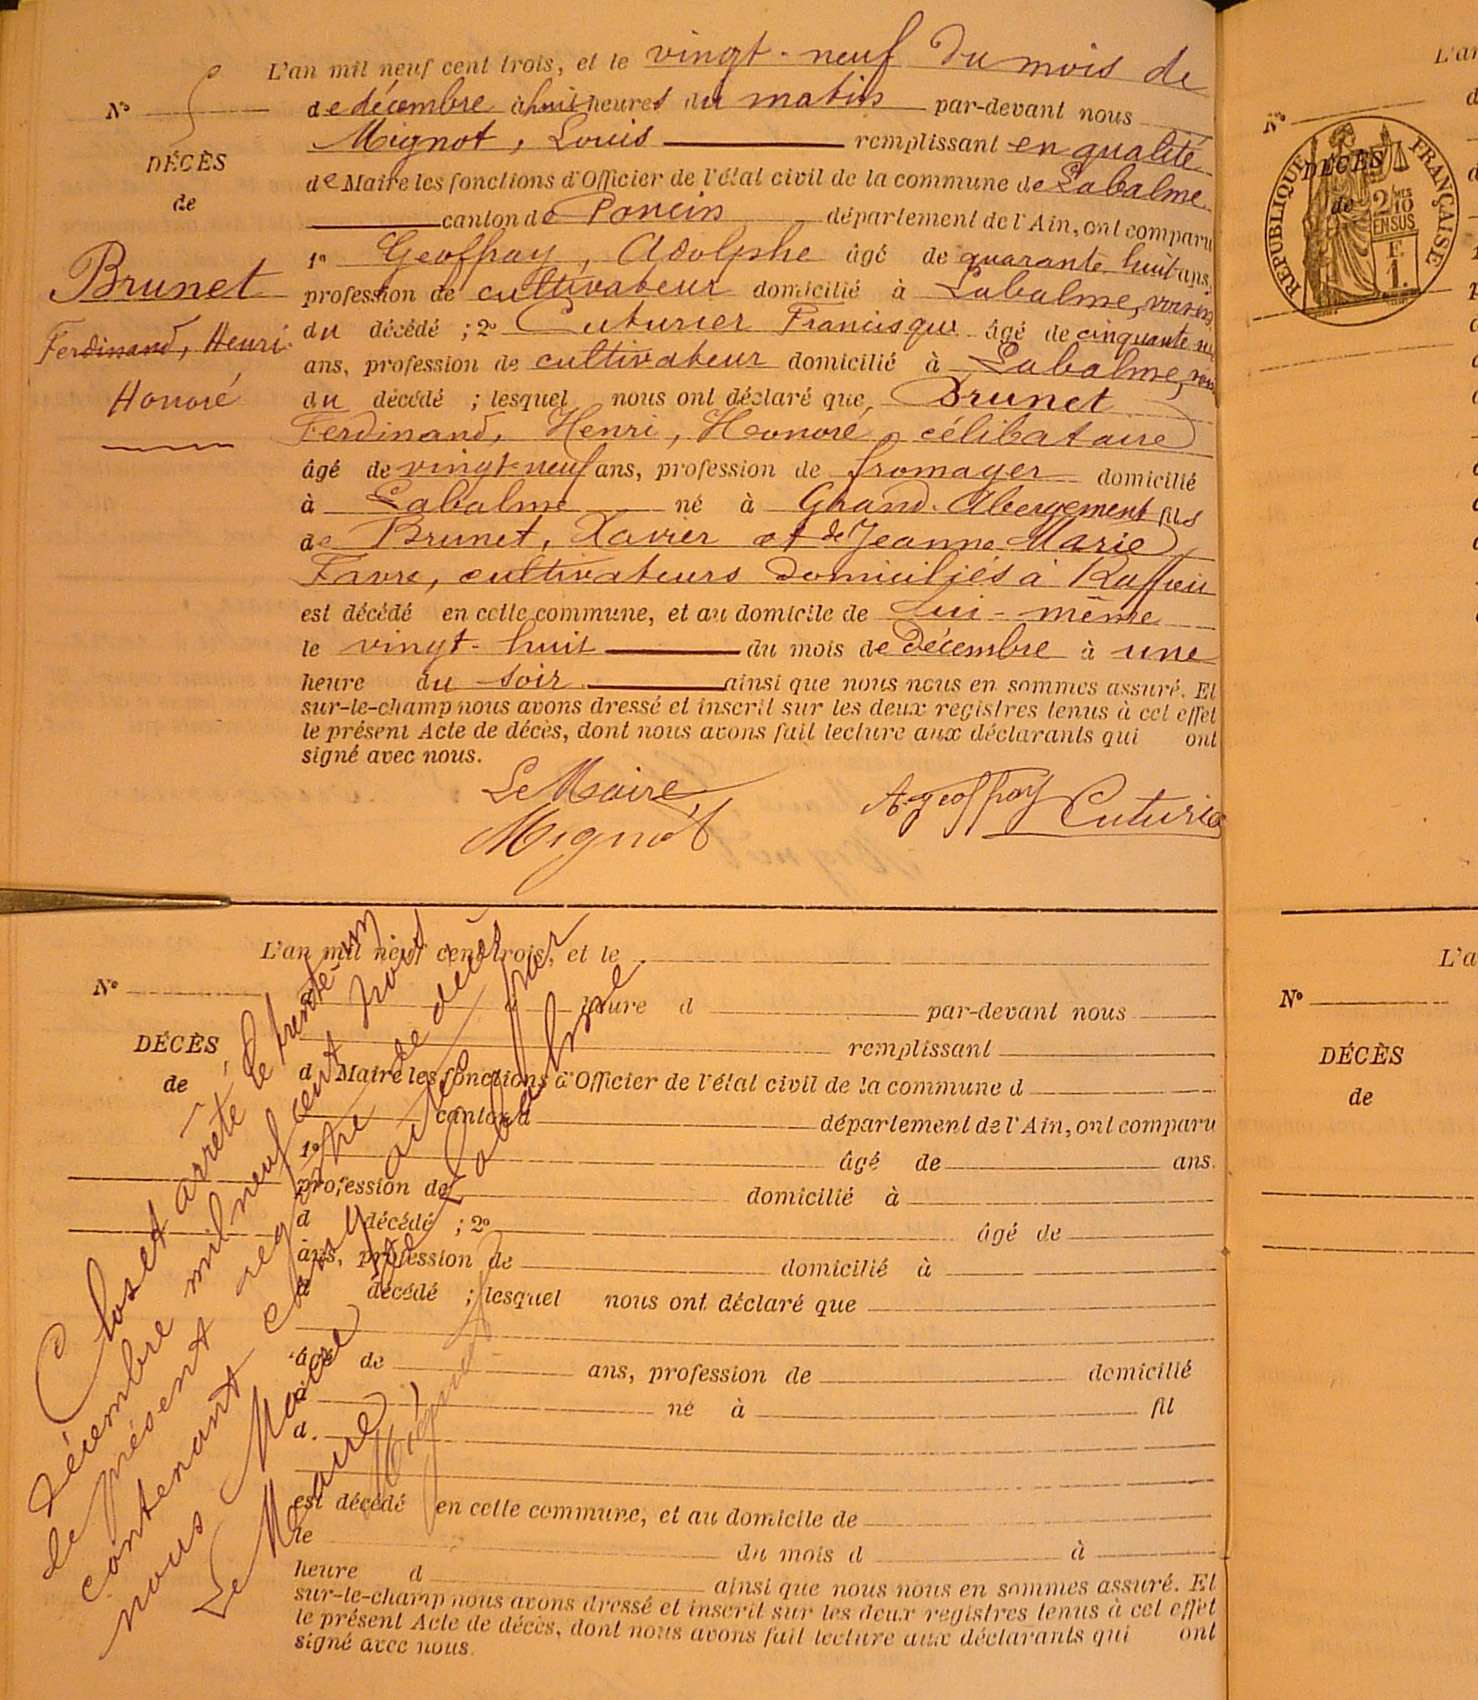 L'an mil neuf cent trois, et le vingt-neuf du mois de
N°
de décembre à huit heures du matin par-devant nous
Mignot, Louis remplissant en qualité
DÉCÈS
de Maire les fonctions d'Officier de l'état civil de la commune de Labalme
de
canton de Poncin département de l'Ain, ont comparu
1° Geoffray, Adolphe âgé de quarante huit ans,
Brunet
profession de cultivateur domicilié à Labalme, voisin
Ferdinand, Henri
du décédé ; 2° Cuturier Francisque âgé de cinquante
ans, profession de cultivateur domicilié à Labalme,
Honoré
du décédé ; lesquel nous ont déclaré que Brunet
Ferdinand, Henri, Honoré, célibataire
âgé de vingt-neuf ans, profession de fromager domicilié
à Labalme né à Grand-Abergement fils
de Brunet, Xavier et de Jeanne Marie
Favre, cultivateurs domiciliés à Ruffieu
est décédé en cette commune, et au domicile de lui-même
le vingt-huit du mois de Décembre à une
heure du soir ainsi que nous nous en sommes assuré. Et
sur-le-champ nous avons dressé et inscrit sur les deux registres tenus à cet effet
le présent Acte de décès, dont nous avons fait lecture aux déclarants qui ont
signé avec nous.
Le Maire
Mignot
A. Geoffray Cuturier
L'an mil neuf cent trois, et le
N°
heure d par-devant nous
DÉCÈS
remplissant
de
d Maire les fonctions d'Officier de l'état civil de la commune d
canton d département de l'Ain, ont comparu
1° âgé de ans.
profession de domicilié à
d décédé ; 2° âgé de
ans, profession de domicilié à
d décédé ; lesquel nous ont déclaré que
âgé de ans, profession de domicilié
à né à fil
d.
est décédé en cette commune, et au domicile de
le du mois d à
heure d ainsi que nous nous en sommes assuré. Et
sur-le-champ nous avons dressé et inscrit sur les deux registres tenus à cet effet
le présent Acte de décès, dont nous avons fait lecture aux déclarants qui ont
signé avec nous.
Clos et arrêté le trente-un
décembre mil neuf cent trois
le présent registre de décès
contenant cinq actes par
nous Maire de Labalme
Le Maire
Mignot
L'a
N°
RÉPUBLIQUE FRANÇAISE
DÉCÈS
de
2 MES
10
EN SUS
F.
1.
L'a
N°
DÉCÈS
de